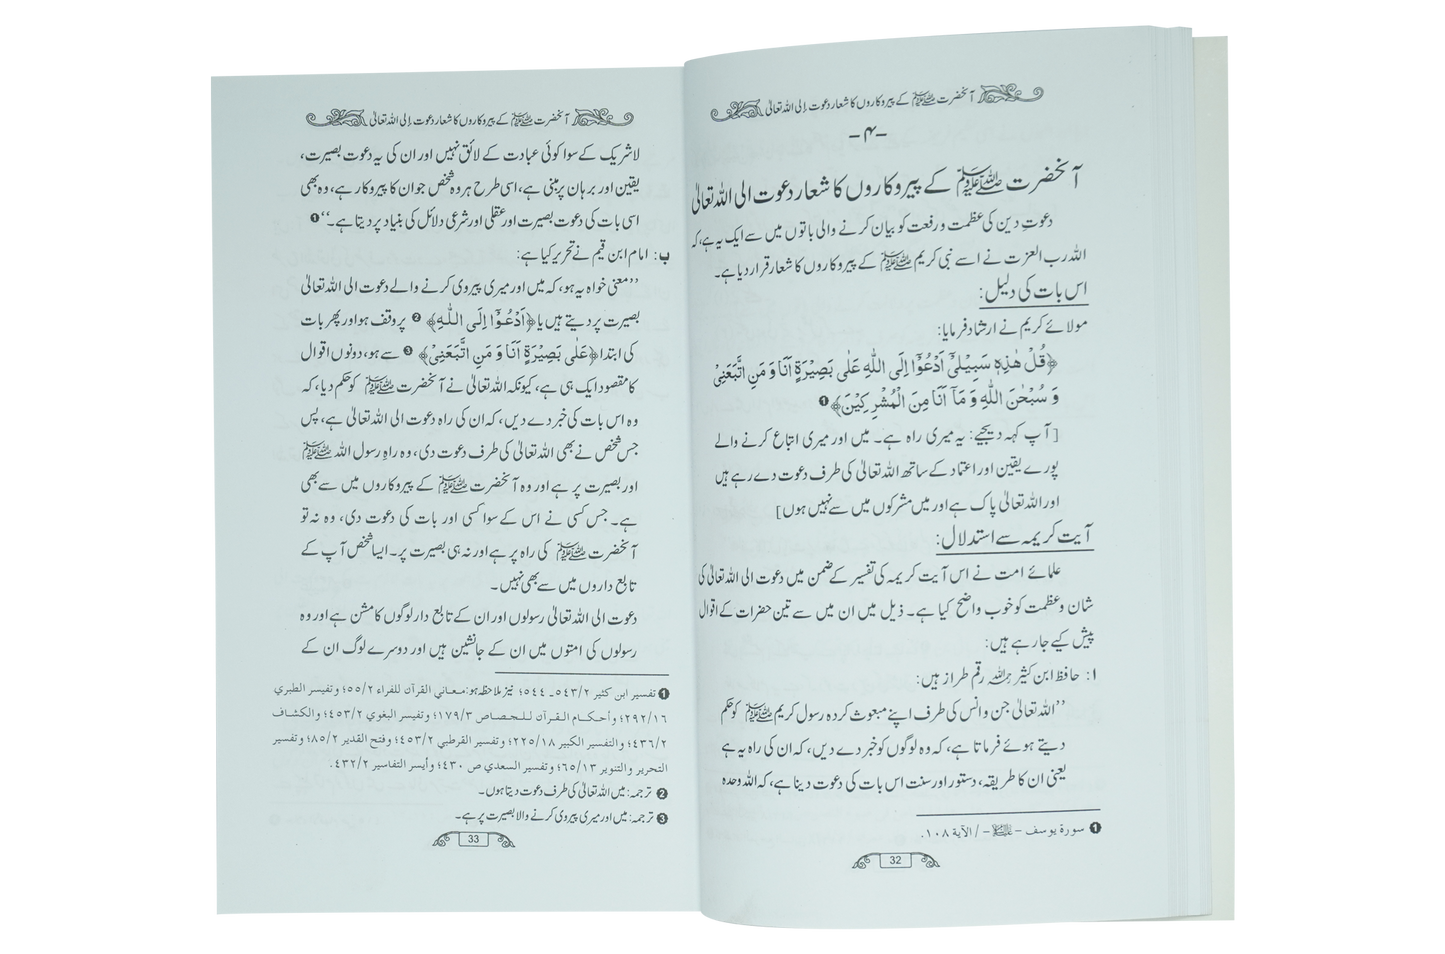 آنحضرت ﷺ کے پیروکاروں کا شعار دعوت إلی اللہ تعالیٰ
-۴-
آنحضرت ﷺ کے پیروکاروں کا شعار دعوت الی اللہ تعالیٰ
دعوتِ دین کی عظمت و رفعت کو بیان کرنے والی باتوں میں سے ایک یہ ہے، کہ
اللہ رب العزت نے اسے نبی کریم ﷺ کے پیروکاروں کا شعار قرار دیا ہے۔
اس بات کی دلیل:
مولائے کریم نے ارشاد فرمایا:
﴿قُلْ هٰذِهٖ سَبِيْلِيْٓ اَدْعُوْٓا اِلَى اللّٰهِ عَلٰى بَصِيْرَةٍ اَنَا وَ مَنِ اتَّبَعَنِيْ
وَ سُبْحٰنَ اللّٰهِ وَ مَآ اَنَا مِنَ الْمُشْرِكِيْنَ﴾ ❶
[آپ کہہ دیجیے: یہ میری راہ ہے۔ میں اور میری اتباع کرنے والے
پورے یقین اور اعتماد کے ساتھ اللہ تعالیٰ کی طرف دعوت دے رہے ہیں
اور اللہ تعالیٰ پاک ہے اور میں مشرکوں میں سے نہیں ہوں]
آیت کریمہ سے استدلال:
علمائے امت نے اس آیت کریمہ کی تفسیر کے ضمن میں دعوت الی اللہ تعالیٰ کی
شان و عظمت کو خوب واضح کیا ہے۔ ذیل میں ان میں سے تین حضرات کے اقوال
پیش کیے جا رہے ہیں:
ا: حافظ ابن کثیر رحمہ اللہ رقم طراز ہیں:
’’اللہ تعالیٰ جن و انس کی طرف اپنے مبعوث کردہ رسول کریم ﷺ کو حکم
دیتے ہوئے فرماتا ہے، کہ وہ لوگوں کو خبر دے دیں، کہ ان کی راہ یہ ہے
یعنی ان کا طریقہ، دستور اور سنت اس بات کی دعوت دینا ہے، کہ اللہ وحدہ
❶ سورة يوسف – علیہ السلام – / الآية ١٠٨.
32
آنحضرت ﷺ کے پیروکاروں کا شعار دعوت إلی اللہ تعالیٰ
لاشریک کے سوا کوئی عبادت کے لائق نہیں اور ان کی یہ دعوت بصیرت،
یقین اور برہان پر مبنی ہے، اسی طرح ہر وہ شخص جو ان کا پیروکار ہے، وہ بھی
اسی بات کی دعوت بصیرت اور عقلی اور شرعی دلائل کی بنیاد پر دیتا ہے۔‘‘ ❶
ب: امام ابن قیم نے تحریر کیا ہے:
’’معنی خواہ یہ ہو، کہ میں اور میری پیروی کرنے والے دعوت الی اللہ تعالیٰ
بصیرت پر دیتے ہیں یا ﴿اَدْعُوْٓا اِلَى اللّٰهِ﴾ ❷ پر وقف ہو اور پھر بات
کی ابتدا ﴿عَلٰى بَصِيْرَةٍ اَنَا وَ مَنِ اتَّبَعَنِيْ﴾ ❸ سے ہو، دونوں اقوال
کا مقصود ایک ہی ہے، کیونکہ اللہ تعالیٰ نے آنحضرت ﷺ کو حکم دیا، کہ
وہ اس بات کی خبر دے دیں، کہ ان کی راہ دعوت الی اللہ تعالیٰ ہے، پس
جس شخص نے بھی اللہ تعالیٰ کی طرف دعوت دی، وہ راہِ رسول اللہ ﷺ
اور بصیرت پر ہے اور وہ آنحضرت ﷺ کے پیروکاروں میں سے بھی
ہے۔ جس کسی نے اس کے سوا کسی اور بات کی دعوت دی، وہ نہ تو
آنحضرت ﷺ کی راہ پر ہے اور نہ ہی بصیرت پر۔ ایسا شخص آپ کے
تابع داروں میں سے بھی نہیں۔
دعوت الی اللہ تعالیٰ رسولوں اور ان کے تابع دار لوگوں کا مشن ہے اور وہ
رسولوں کی امتوں میں ان کے جانشین ہیں اور دوسرے لوگ ان کے
❶ تفسير ابن كثير ٥٤٣/٢ـ ٥٤٤؛ نیز ملاحظہ ہو: معاني القرآن للفراء ٥٥/٢؛ وتفسير الطبري
٢٩٢/١٦؛ وأحكام القرآن للجصاص ١٧٩/٣؛ وتفسير البغوي ٤٥٣/٢؛ والكشاف
٤٣٦/٢؛ والتفسير الكبير ٢٢٥/١٨؛ وتفسير القرطبي ٤٥٣/٢؛ وفتح القدير ٨٥/٢؛ وتفسير
التحرير والتنوير ٦٥/١٣؛ وتفسير السعدي ص ٤٣٠؛ وأيسر التفاسير ٤٣٢/٢.
❷ ترجمہ: میں اللہ تعالیٰ کی طرف دعوت دیتا ہوں۔
❸ ترجمہ: میں اور میری پیروی کرنے والا بصیرت پر ہے۔
33